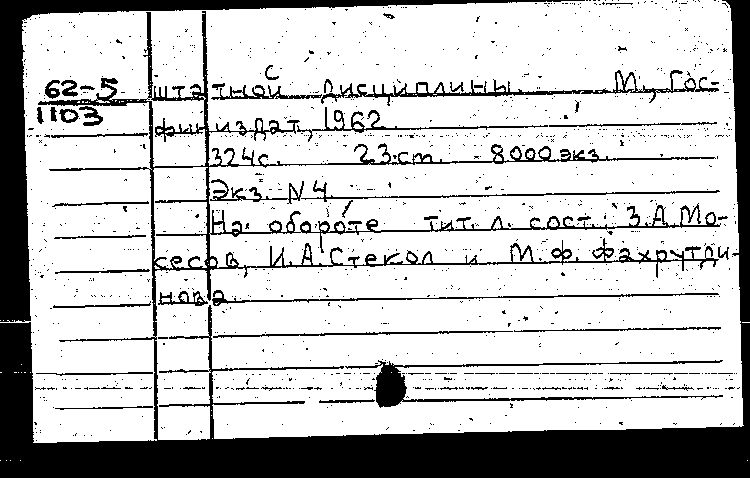 62-5
1103
штатной дисциплины. М., Гос-
финиздат, 1962.
324с. 23 ст. 8000 экз.
Экз. N4
На обороте тит. л. сост.: З.А.Мо-
сесов, И.А.Стекол и М.Ф.Фахрутди-
нова.